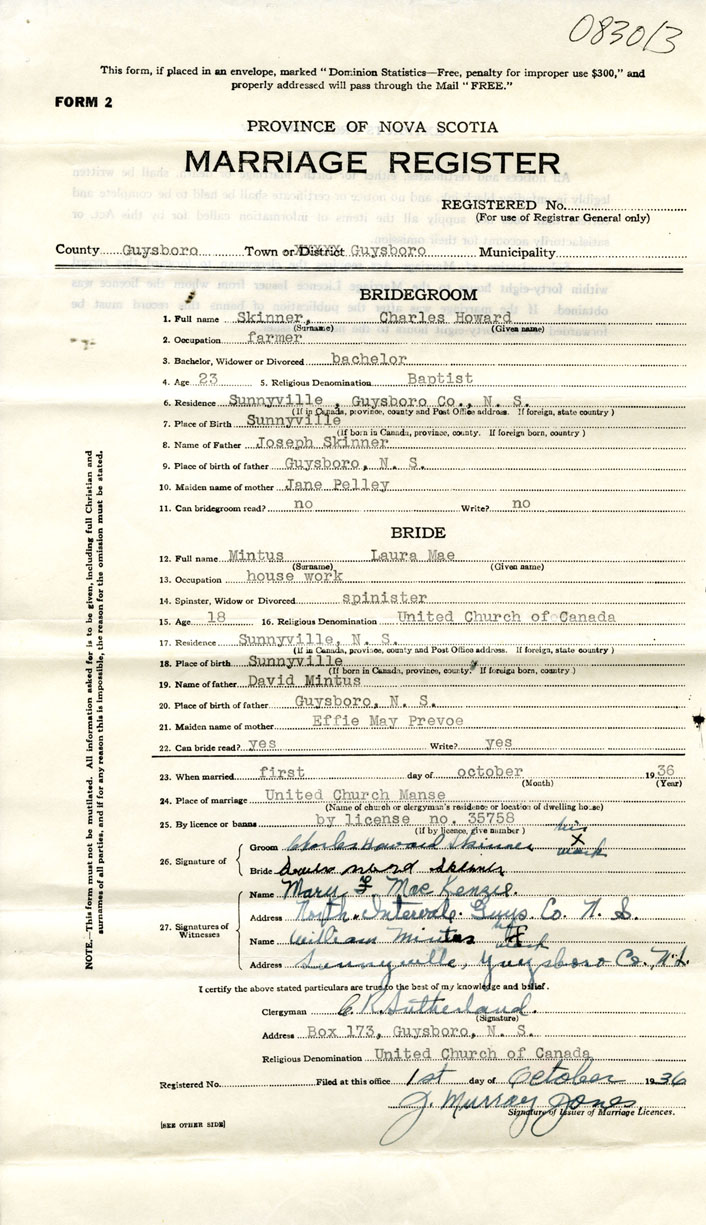 083013
This form, if placed in an envelope, marked "Dominion Statistics—Free, penalty for improper use $300," and
properly addressed will pass through the Mail "FREE."
FORM 2
PROVINCE OF NOVA SCOTIA
MARRIAGE REGISTER
REGISTERED No.
(For use of Registrar General only)
County Guysboro Town or District Guysboro Municipality
BRIDEGROOM
1. Full name Skinner, Charles Howard
(Surname) (Given name)
2. Occupation farmer
3. Bachelor, Widower or Divorced bachelor
4. Age 23 5. Religious Denomination Baptist
6. Residence Sunnyville, Guysboro Co., N. S.
(If in Canada, province, county and Post Office address. If foreign, state country)
7. Place of Birth Sunnyville
(If born in Canada, province, county. If foreign born, country)
8. Name of Father Joseph Skinner
9. Place of birth of father Guysboro, N. S.
10. Maiden name of mother Jane Pelley
11. Can bridegroom read? no Write? no
BRIDE
12. Full name Mintus Laura Mae
(Surname) (Given name)
13. Occupation house work
14. Spinster, Widow or Divorced spinister
15. Age 18 16. Religious Denomination United Church of Canada
17. Residence Sunnyville, N. S.
(If in Canada, province, county and Post Office address. If foreign, state country)
18. Place of birth Sunnyville
(If born in Canada, province, county. If foreign born, country)
19. Name of father David Mintus
20. Place of birth of father Guysboro, N. S.
21. Maiden name of mother Effie May Prevoe
22. Can bride read? yes Write? yes
23. When married first day of october 1936
(Month) (Year)
24. Place of marriage United Church Manse
(Name of church or clergyman's residence or location of dwelling house)
25. By licence or banns by license no. 35758
(If by licence, give number)
26. Signature of
Groom Charles Howard Skinner his X mark
Bride
27. Signatures of Witnesses
Name Mary F MacKenzie.
Address North Intervale Guys. Co. N. S.
Name William Mintus his X mark
Address Sunnyville, Guysboro Co., N.S.
I certify the above stated particulars are true to the best of my knowledge and belief.
Clergyman C. R. Sutherland.
(Signature)
Address Box 173, Guysboro, N. S.
Religious Denomination United Church of Canada
Registered No. Filed at this office 1st day of October 1936
J. Murray Jones
Signature of Issuer of Marriage Licences.
[SEE OTHER SIDE]
NOTE.—This form must not be mutilated. All information asked for is to be given, including full Christian and
surnames of all parties, and if for any reason this is impossible, the reason for the omission must be stated.